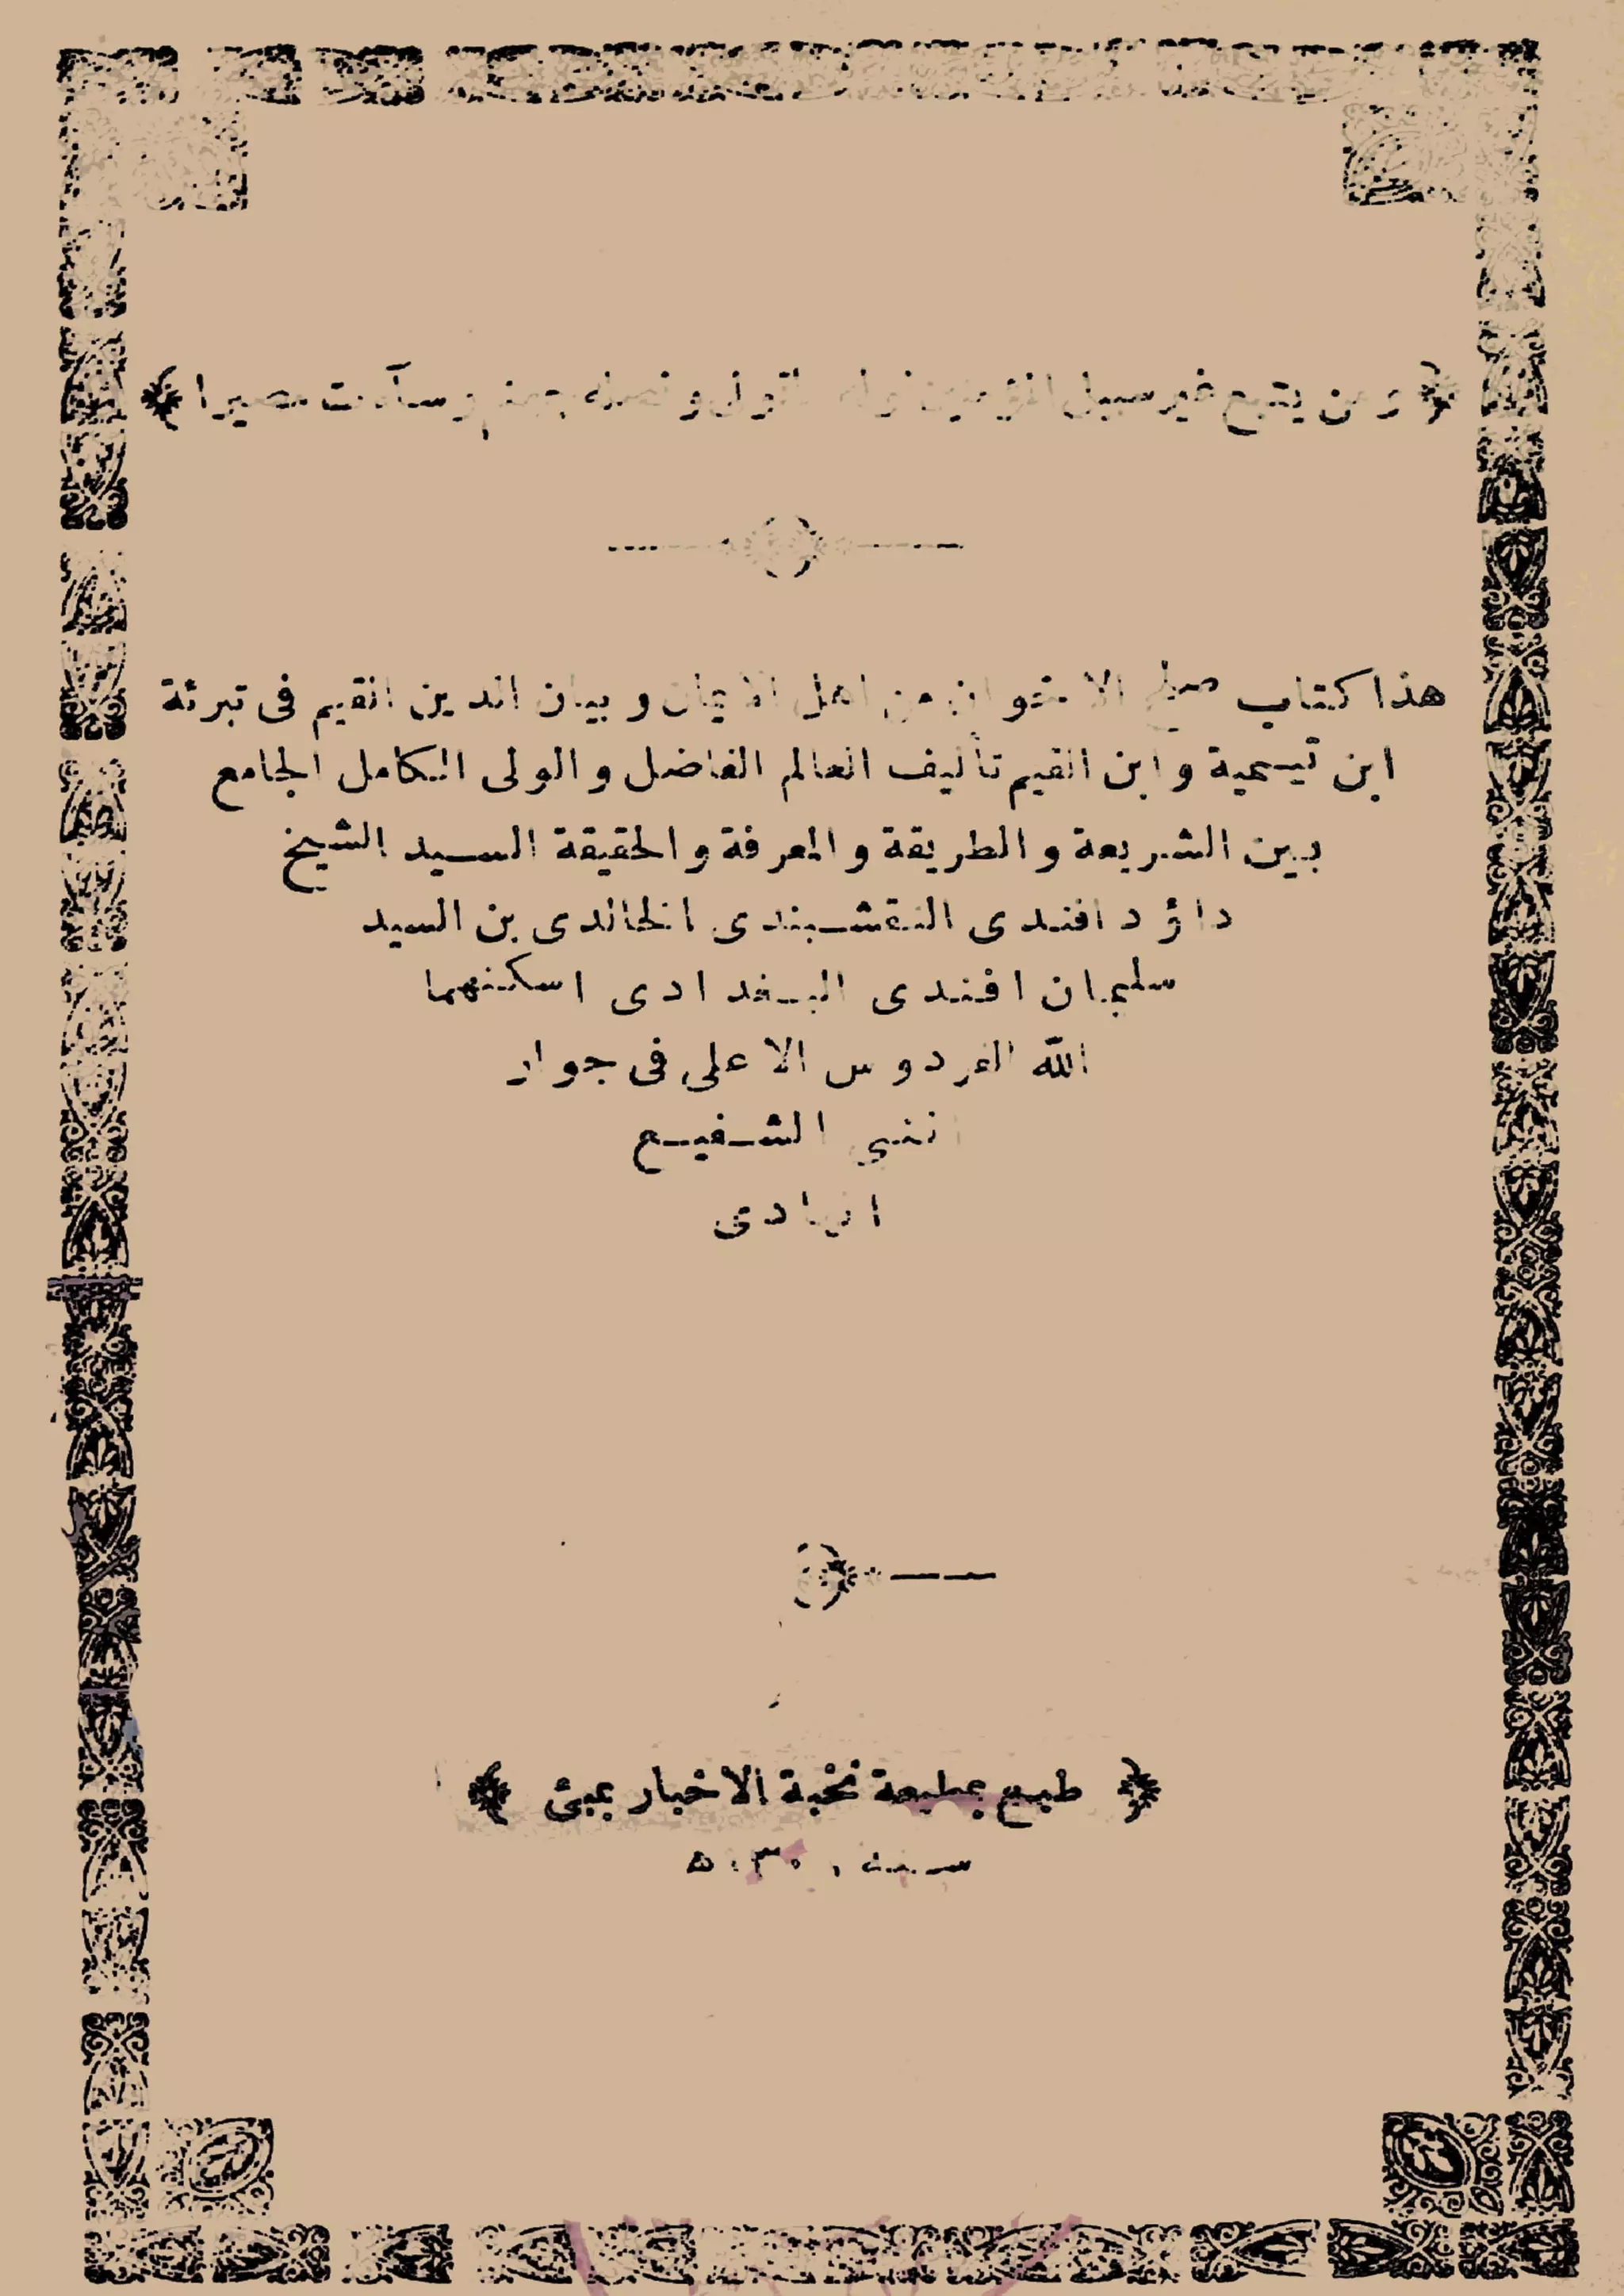 ﴿ ومن يتبع غير سبيل المؤمنين نوله ما تولى ونصله جهنم وسآءت مصيرا ﴾
هذا كتاب صلح الاخوان من اهل الايمان وبيان الدين القيم فى تبرئة
ابن تيمية وابن القيم تأليف العالم الفاضل والولى الكامل الجامع
بين الشريعة والطريقة والمعرفة والحقيقة السيد الشيخ
داؤد افندى النقشبندى الخالدى بن السيد
سليمان افندى البغدادى اسكنهما
الله الفردوس الاعلى فى جوار
النبى الشفيع
الهادى
﴿ طبع بمطبعة نخبة الاخبار بمبئ ﴾
سنة